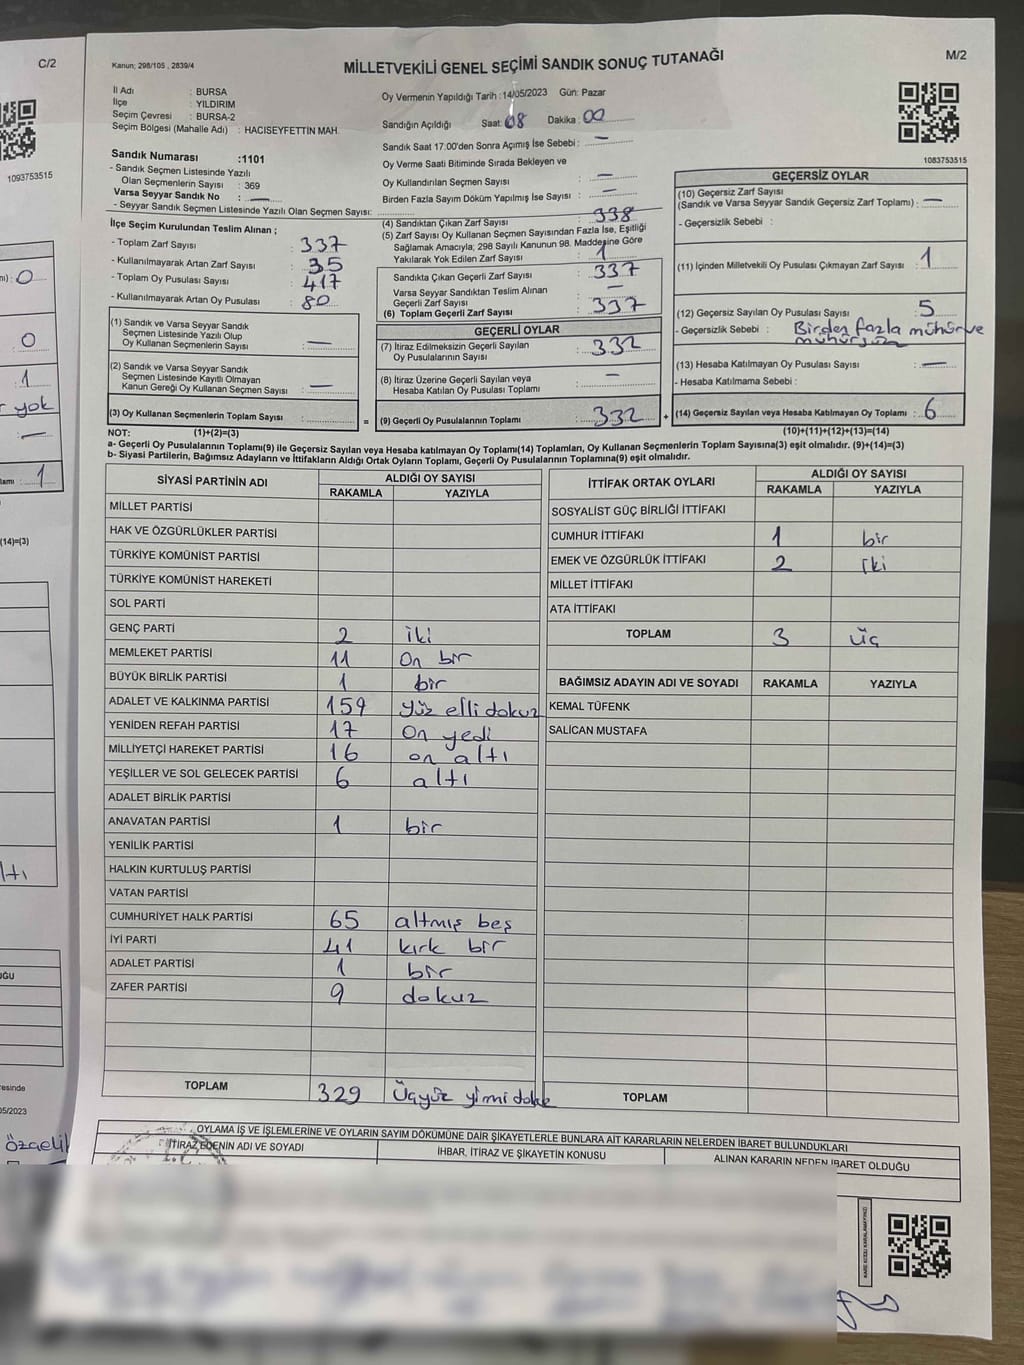 C/2
1093753515
0
0
1
yok
1
(14)=(3)
05/2023
Kanun; 298/105 , 2839/4
MİLLETVEKİLİ GENEL SEÇİMİ SANDIK SONUÇ TUTANAĞI
M/2
İl Adı : BURSA
İlçe : YILDIRIM
Seçim Çevresi : BURSA-2
Seçim Bölgesi (Mahalle Adı) : HACISEYFETTİN MAH.
Oy Vermenin Yapıldığı Tarih :14/05/2023 Gün: Pazar
Sandığın Açıldığı Saat: 08 Dakika : 00
Sandık Saat 17:00'den Sonra Açımış İse Sebebi : —
Oy Verme Saati Bitiminde Sırada Bekleyen ve
Oy Kullandırılan Seçmen Sayısı : —
Birden Fazla Sayım Döküm Yapılmış İse Sayısı : —
1083753515
Sandık Numarası :1101
- Sandık Seçmen Listesinde Yazılı
Olan Seçmenlerin Sayısı : 369
Varsa Seyyar Sandık No : —
- Seyyar Sandık Seçmen Listesinde Yazılı Olan Seçmen Sayısı:
İlçe Seçim Kurulundan Teslim Alınan ;
- Toplam Zarf Sayısı : 337
- Kullanılmayarak Artan Zarf Sayısı : 35
- Toplam Oy Pusulası Sayısı : 417
- Kullanılmayarak Artan Oy Pusulası : 80
(1) Sandık ve Varsa Seyyar Sandık
Seçmen Listesinde Yazılı Olup
Oy Kullanan Seçmenlerin Sayısı : —
(2) Sandık ve Varsa Seyyar Sandık
Seçmen Listesinde Kayıtlı Olmayan
Kanun Gereği Oy Kullanan Seçmen Sayısı : —
(3) Oy Kullanan Seçmenlerin Toplam Sayısı :
(4) Sandıktan Çıkan Zarf Sayısı : 338
(5) Zarf Sayısı Oy Kullanan Seçmen Sayısından Fazla İse, Eşitliği
Sağlamak Amacıyla; 298 Sayılı Kanunun 98. Maddesine Göre
Yakılarak Yok Edilen Zarf Sayısı : 1
Sandıkta Çıkan Geçerli Zarf Sayısı : 337
Varsa Seyyar Sandıktan Teslim Alınan
Geçerli Zarf Sayısı : —
(6) Toplam Geçerli Zarf Sayısı : 337
GEÇERLİ OYLAR
(7) İtiraz Edilmeksizin Geçerli Sayılan
Oy Pusulalarının Sayısı : 332
(8) İtiraz Üzerine Geçerli Sayılan veya
Hesaba Katılan Oy Pusulası Toplamı : —
= (9) Geçerli Oy Pusulalarının Toplamı : 332 +
GEÇERSİZ OYLAR
(10) Geçersiz Zarf Sayısı
(Sandık ve Varsa Seyyar Sandık Geçersiz Zarf Toplamı) : —
- Geçersizlik Sebebi :
(11) İçinden Milletvekili Oy Pusulası Çıkmayan Zarf Sayısı : 1
(12) Geçersiz Sayılan Oy Pusulası Sayısı : 5
- Geçersizlik Sebebi : Birden fazla mühür ve
(13) Hesaba Katılmayan Oy Pusulası Sayısı : —
- Hesaba Katılmama Sebebi :
(14) Geçersiz Sayılan veya Hesaba Katılmayan Oy Toplamı : 6
NOT: (1)+(2)=(3)
(10)+(11)+(12)+(13)=(14)
a- Geçerli Oy Pusulalarının Toplamı(9) ile Geçersiz Sayılan veya Hesaba katılmayan Oy Toplamı(14) Toplamları, Oy Kullanan Seçmenlerin Toplam Sayısına(3) eşit olmalıdır. (9)+(14)=(3)
b- Siyasi Partilerin, Bağımsız Adayların ve İttifakların Aldığı Ortak Oyların Toplamı, Geçerli Oy Pusulalarının Toplamına(9) eşit olmalıdır.
SİYASİ PARTİNİN ADI ALDIĞI OY SAYISI
RAKAMLA YAZIYLA
MİLLET PARTİSİ
HAK VE ÖZGÜRLÜKLER PARTİSİ
TÜRKİYE KOMÜNİST PARTİSİ
TÜRKİYE KOMÜNİST HAREKETİ
SOL PARTİ
GENÇ PARTİ 2 iki
MEMLEKET PARTİSİ 11 On bir
BÜYÜK BİRLİK PARTİSİ 1 bir
ADALET VE KALKINMA PARTİSİ 159 yüz elli dokuz
YENİDEN REFAH PARTİSİ 17 On yedi
MİLLİYETÇİ HAREKET PARTİSİ 16 on altı
YEŞİLLER VE SOL GELECEK PARTİSİ 6 altı
ADALET BİRLİK PARTİSİ
ANAVATAN PARTİSİ 1 bir
YENİLİK PARTİSİ
HALKIN KURTULUŞ PARTİSİ
VATAN PARTİSİ
CUMHURİYET HALK PARTİSİ 65 altmış beş
İYİ PARTİ 41 kırk bir
ADALET PARTİSİ 1 bir
ZAFER PARTİSİ 9 dokuz
TOPLAM 329 Üçyüz yirmi dokuz
İTTİFAK ORTAK OYLARI ALDIĞI OY SAYISI
RAKAMLA YAZIYLA
SOSYALİST GÜÇ BİRLİĞİ İTTİFAKI
CUMHUR İTTİFAKI 1 bir
EMEK VE ÖZGÜRLÜK İTTİFAKI 2 iki
MİLLET İTTİFAKI
ATA İTTİFAKI
TOPLAM 3 üç
BAĞIMSIZ ADAYIN ADI VE SOYADI RAKAMLA YAZIYLA
KEMAL TÜFENK
SALİCAN MUSTAFA
TOPLAM
OYLAMA İŞ VE İŞLEMLERİNE VE OYLARIN SAYIM DÖKÜMÜNE DAİR ŞİKAYETLERLE BUNLARA AİT KARARLARIN NELERDEN İBARET BULUNDUKLARI
İTİRAZ EDENİN ADI VE SOYADI İHBAR, İTİRAZ VE ŞİKAYETİN KONUSU ALINAN KARARIN NEDEN İBARET OLDUĞU